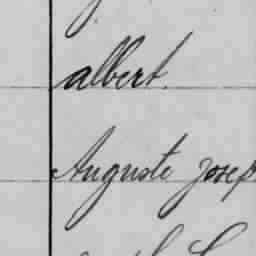 albert.
Auguste Josep